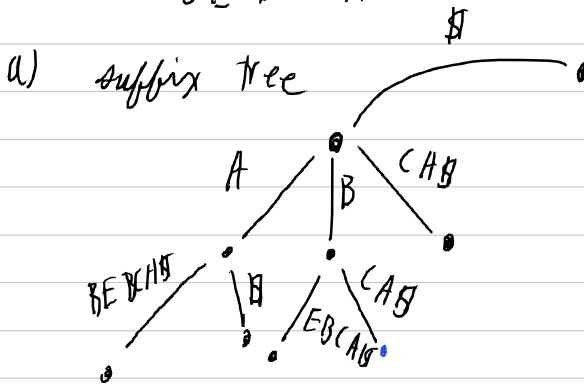 $
a) suffix tree
A B CA$
BEBCA$ $ EBCA$ CA$